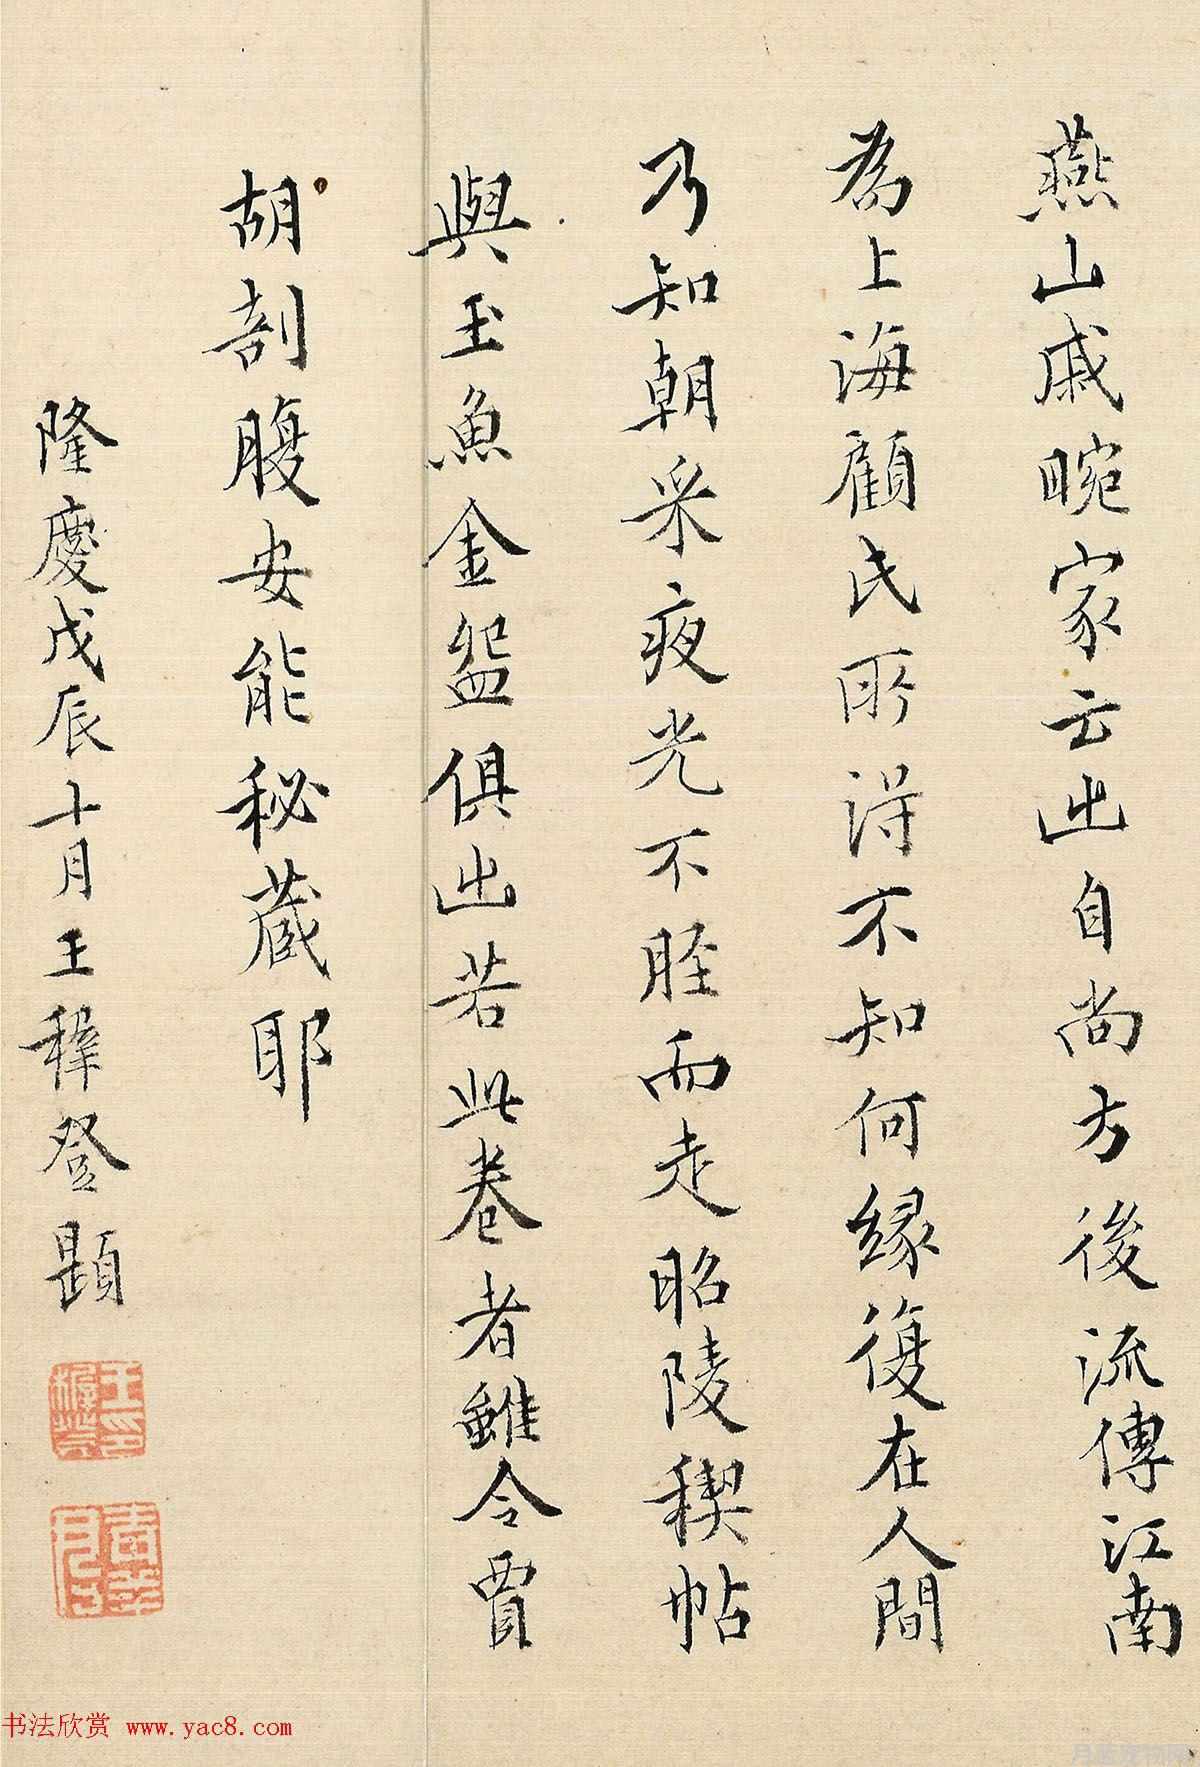 燕山戚畹家云出自尚方後流傳江南
為上海顧氏所得不知何緣復在人間
乃知朝采夜光不脛而走昭陵稧帖
與玉魚金盌俱出若此卷者雖令賈
胡剖腹安能秘藏耶
隆慶戊辰十月王穉登題
王印穉登
书法欣赏 www.yac8.com